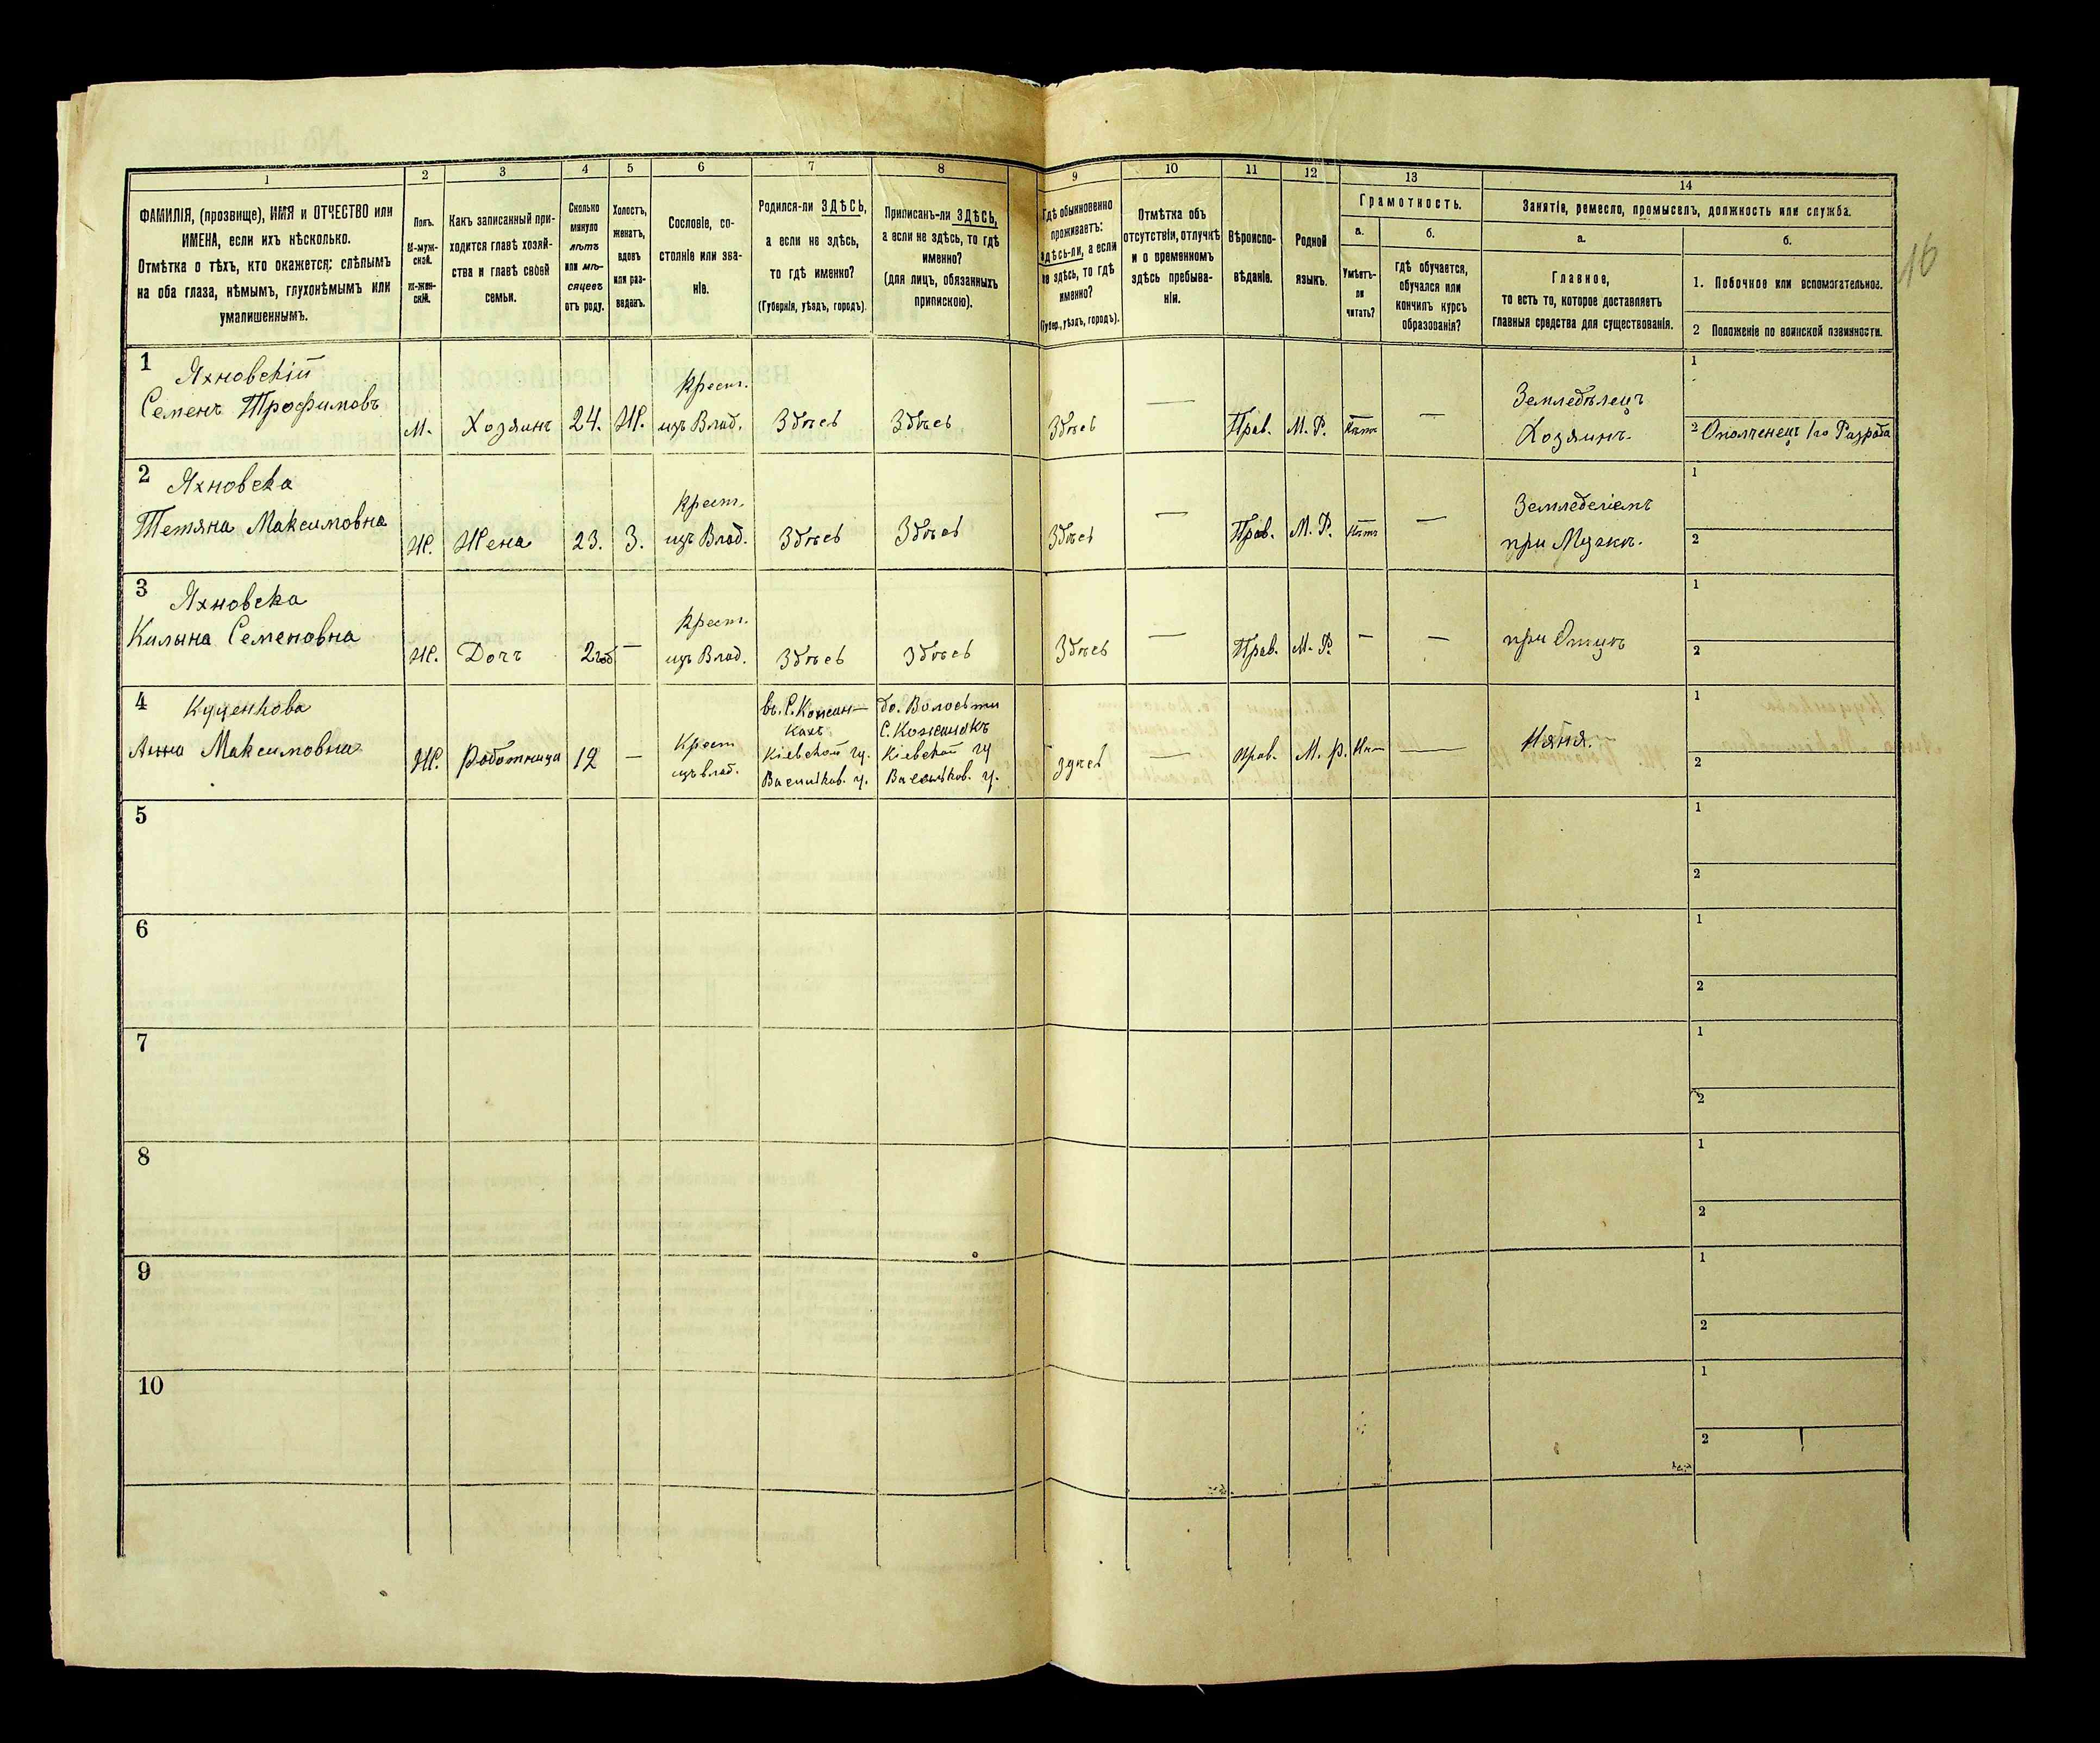 1
2
3
4
5
6
7
8
9
10
11
12
13
14
ФАМИЛІЯ, (прозвище), ИМЯ и ОТЧЕСТВО или
ИМЕНА, если ихъ нѣсколько.
Отмѣтка о тѣхъ, кто окажется: слѣпымъ
на оба глаза, нѣмымъ, глухонѣмымъ или
умалишеннымъ.
Полъ.
М-муж-
ской.
Ж-жен-
скій.
Какъ записанный при-
ходится главѣ хозяй-
ства и главѣ своей
семьи.
Сколько
минуло
лѣтъ
или мѣ-
сяцевъ
отъ роду.
Холостъ,
женатъ,
вдовъ
или раз-
веденъ.
Сословіе, со-
стояніе или зва-
ніе.
Родился-ли ЗДѢСЬ,
а если не здѣсь,
то гдѣ именно?
(Губернія, уѣздъ, городъ).
Приписанъ-ли ЗДѢСЬ,
а если не здѣсь, то гдѣ
именно?
(для лицъ, обязанныхъ
припискою).
Гдѣ обыкновенно
проживаетъ:
здѣсь-ли, а если
не здѣсь, то гдѣ
именно?
(Губер., уѣздъ, городъ).
Отмѣтка объ
отсутствіи, отлучкѣ
и о временномъ
здѣсь пребыва-
ніи.
Вѣроиспо-
вѣданіе.
Родной
языкъ.
Грамотность.
а.
Умѣетъ-
ли
читать?
б.
гдѣ обучается,
обучался или
кончилъ курсъ
образованія?
Занятіе, ремесло, промыселъ, должность или служба.
а.
Главное,
то есть то, которое доставляетъ
главныя средства для существованія.
б.
1. Побочное или вспомогательное.
2 Положеніе по воинской повинности.
16
1
Яхновскій
Семенъ Трофимовъ
М.
Хозяинъ
24.
Ж.
Крест.
изъ Влад.
Здѣсь
Здѣсь
Здѣсь
—
Прав.
М. Р.
Нѣтъ
—
Земледѣлецъ
Хозяинъ.
1
2 Ополченецъ 1го Разряда
2
Яхновска
Тетяна Максимовна
Ж.
Жена
23.
З.
Крест.
изъ Влад.
Здѣсь
Здѣсь
Здѣсь
—
Прав.
М. Р.
Нѣтъ
—
Земледеліемъ
при Мужѣ.
1
2
3
Яхновска
Килына Семеновна
Ж.
Дочъ
2 год
—
Крест.
изъ Влад.
Здѣсь
Здѣсь
Здѣсь
—
Прав.
М. Р.
—
—
при Отцѣ
1
2
4
Куценкова
Анна Максимовна
Ж.
Работница
12
—
Крест
изъ влад.
въ. С. Кожан-
кахъ
Кіевской гу.
Васильков. у.
С. Кожанкъ
Кіевской гу
Васильков. у.
здѣсь
—
прав.
М. р.
Нѣт
—
Няня.
1
2
5
1
2
6
1
2
7
1
2
8
1
2
9
1
2
10
1
2